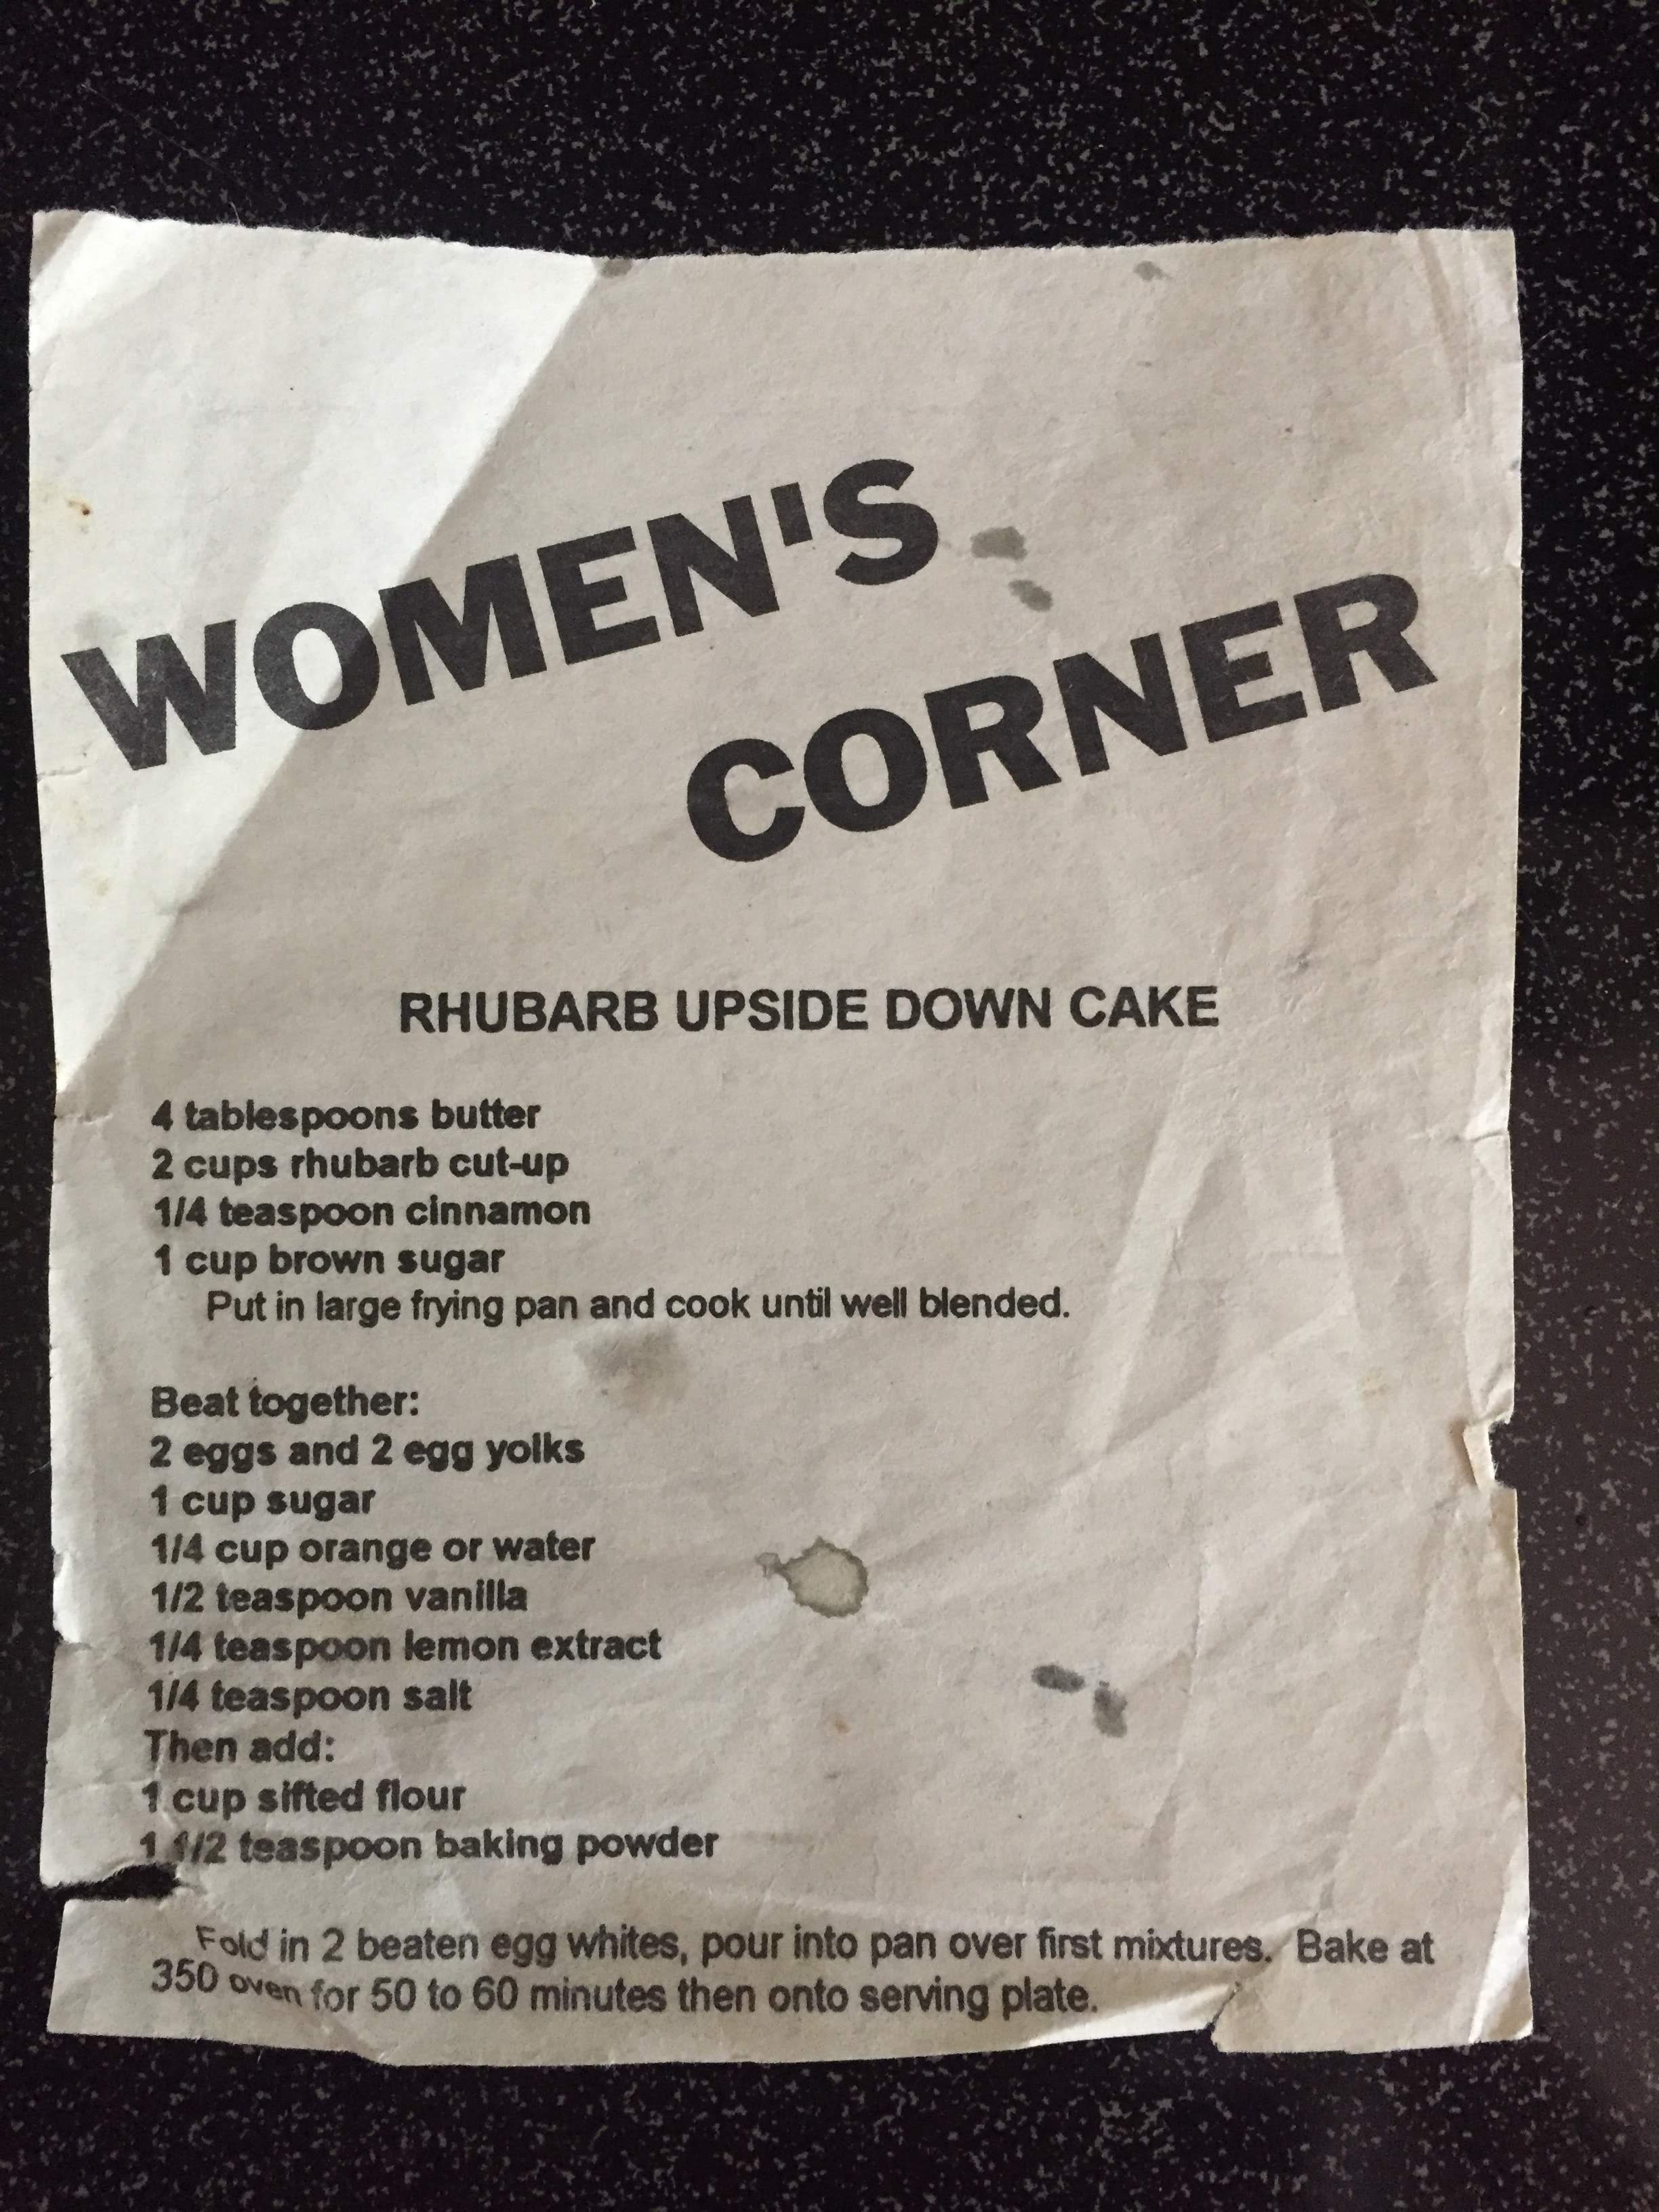 WOMEN'S
CORNER
RHUBARB UPSIDE DOWN CAKE
4 tablespoons butter
2 cups rhubarb cut-up
1/4 teaspoon cinnamon
1 cup brown sugar
Put in large frying pan and cook until well blended.
Beat together:
2 eggs and 2 egg yolks
1 cup sugar
1/4 cup orange or water
1/2 teaspoon vanilla
1/4 teaspoon lemon extract
1/4 teaspoon salt
Then add:
1 cup sifted flour
1 1/2 teaspoon baking powder
Fold in 2 beaten egg whites, pour into pan over first mixtures. Bake at
350 oven for 50 to 60 minutes then onto serving plate.